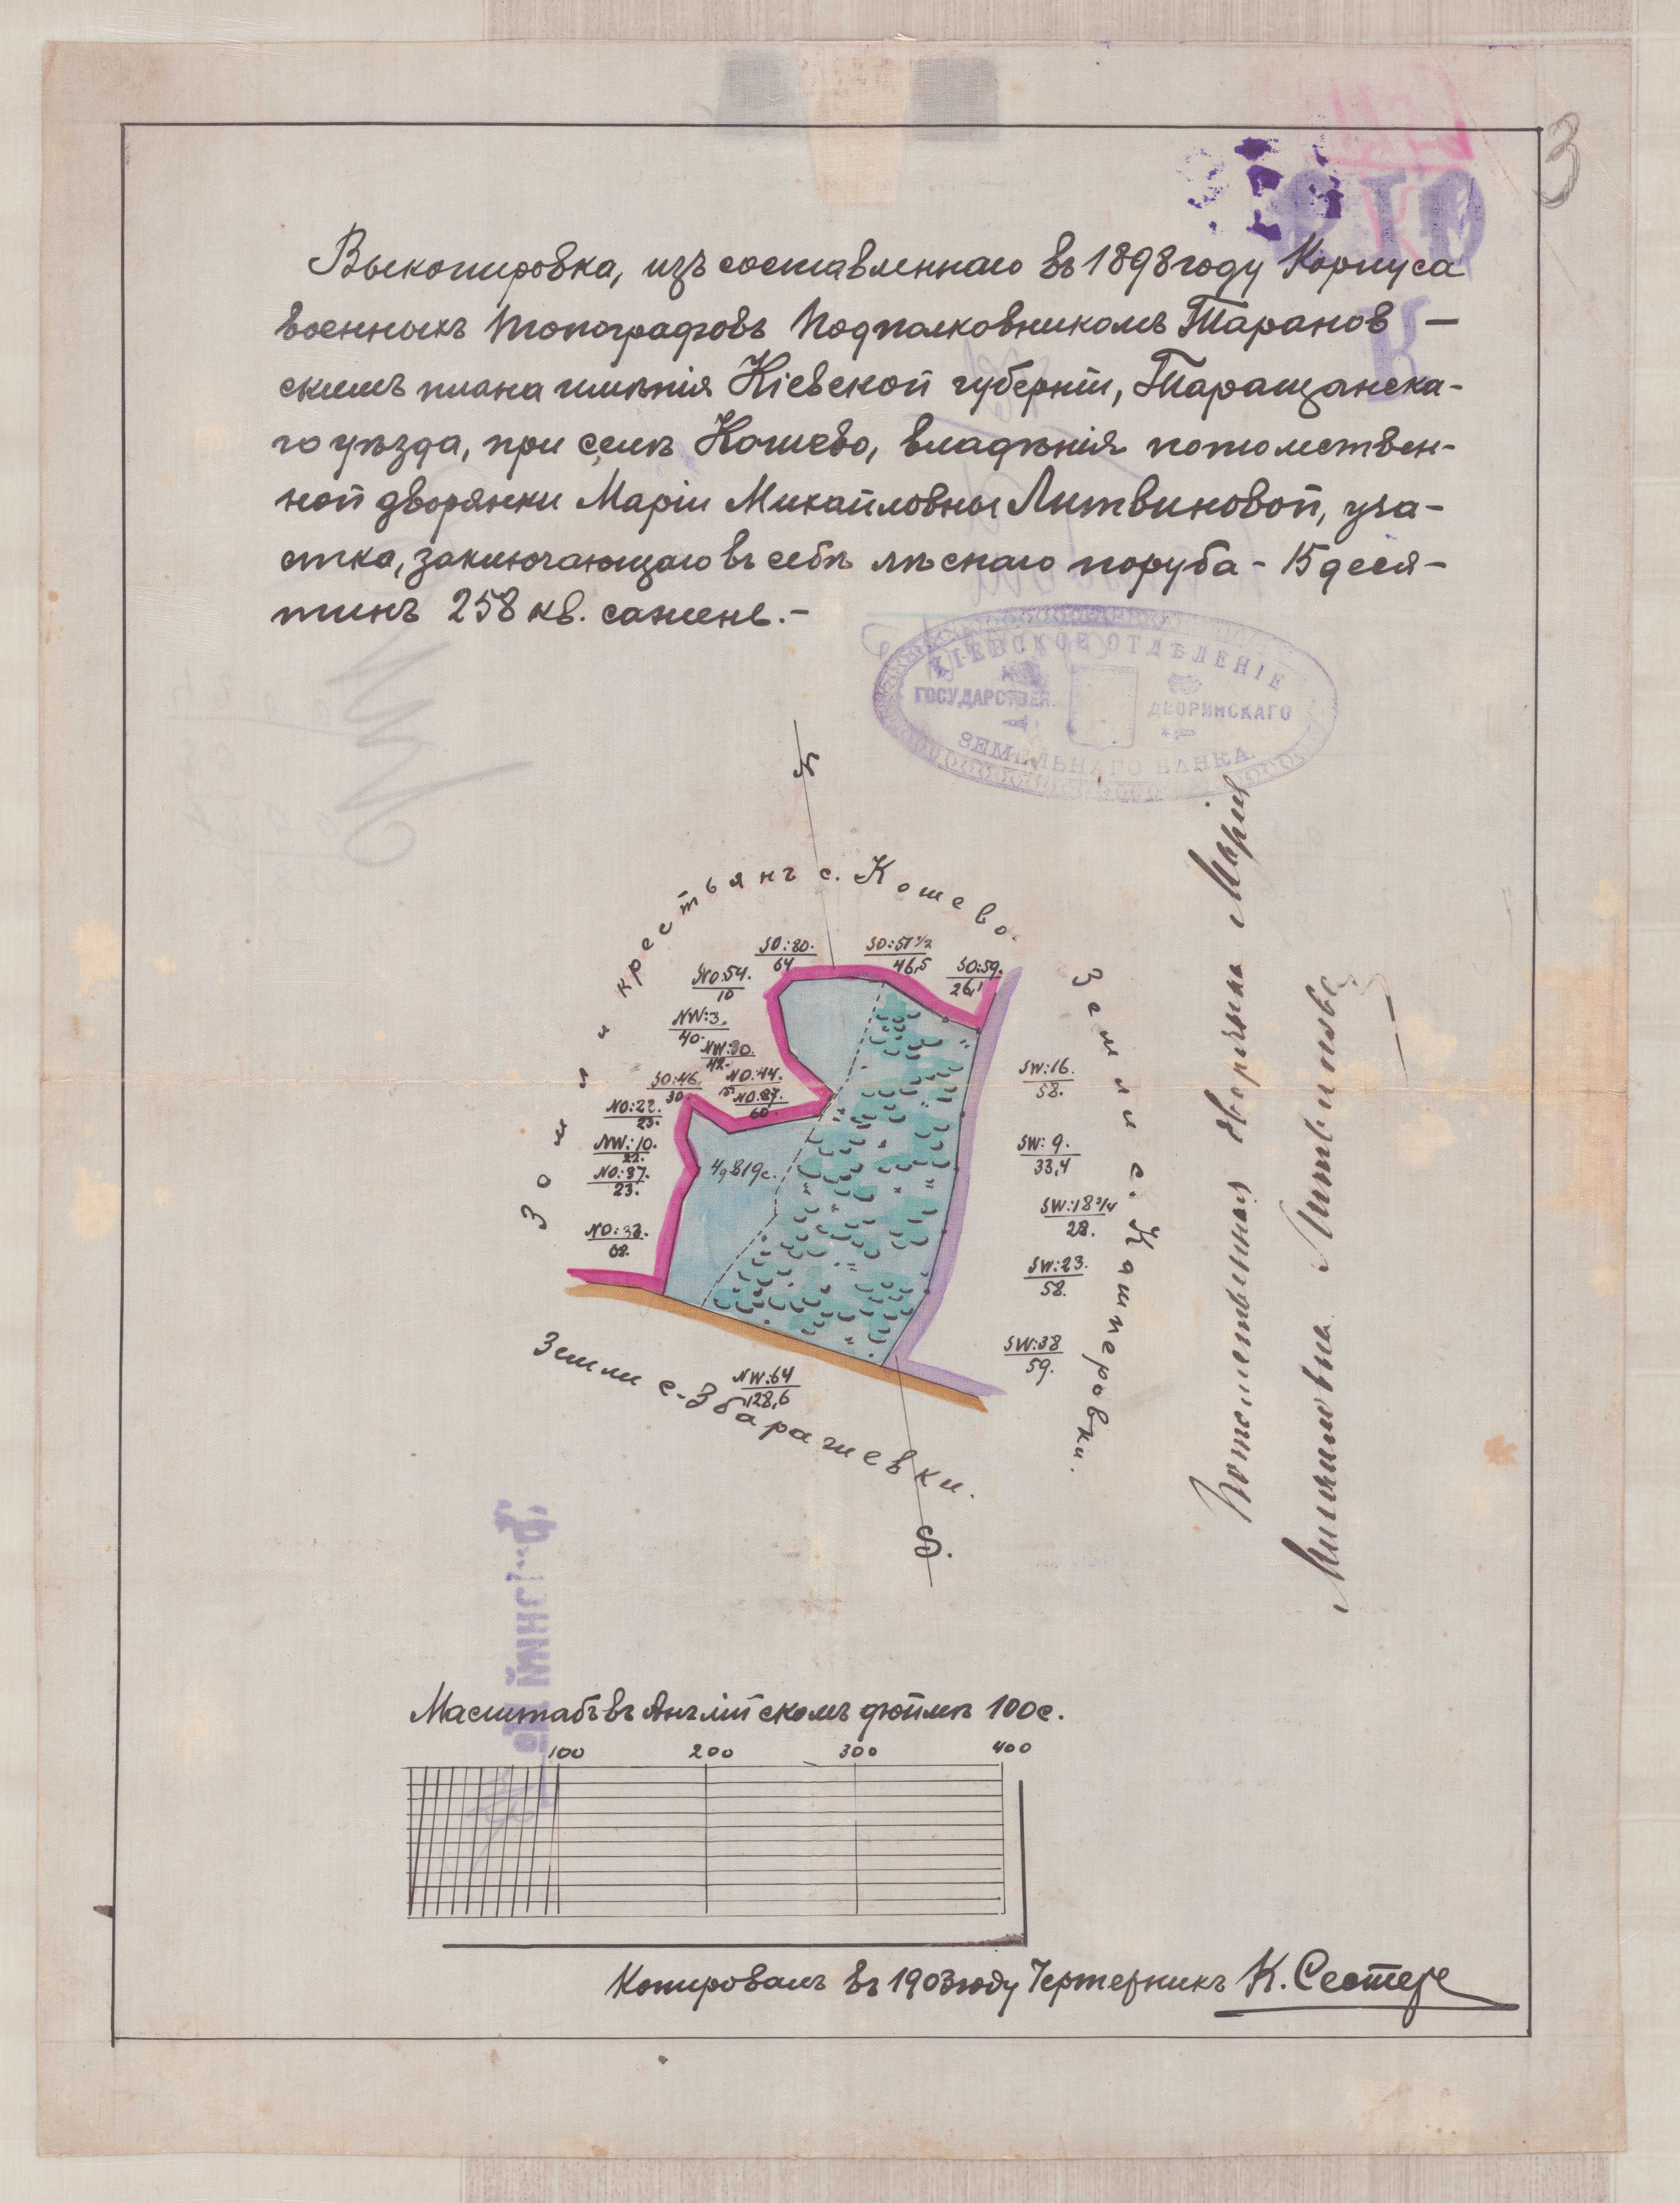 3
Выкопировка, изъ составленнаго въ 1898 году Корпуса
военныхъ Топографовъ Подполковникомъ Таранов-
скимъ плана имѣнія Кіевской губерніи, Таращанска-
го уѣзда, при селѣ Кошево, владѣнія потомствен-
ной дворянки Маріи Михайловны Литвиновой, уча-
стка, заключающаго въ себѣ лѣснаго поруба - 15 деся-
тинъ 258 кв. сажень. -
КІЕВСКОЕ ОТДѢЛЕНІЕ
ГОСУДАРСТВЕН. ДВОРЯНСКАГО
ЗЕМЕЛЬНАГО БАНКА
N
Земли крестьянъ с. Кошево.
SO:80.
64
SO:51½
46,5
SO:59.
26,1
NO:54.
10
NW:3.
40.
NW:30.
42.
SO:46.
30.
NO:44.
5.
NO:87.
60
NO:22.
23.
NW:10.
22.
NO:37.
23.
NO:33.
62.
4д819с.
Земли с. Кашперовки.
SW:16.
58.
SW:9.
33,4
SW:18¾
28.
SW:23.
58.
SW:38
59.
NW:64
128,6
Земли с. Збаражевки.
S.
Потомственная дворянка Марія
Михайловна Литвинова
Масштабъ въ Англійскомъ дюймѣ 100с.
100 200 300 400
Копировалъ въ 1903 году Чертежникъ К. Сестер